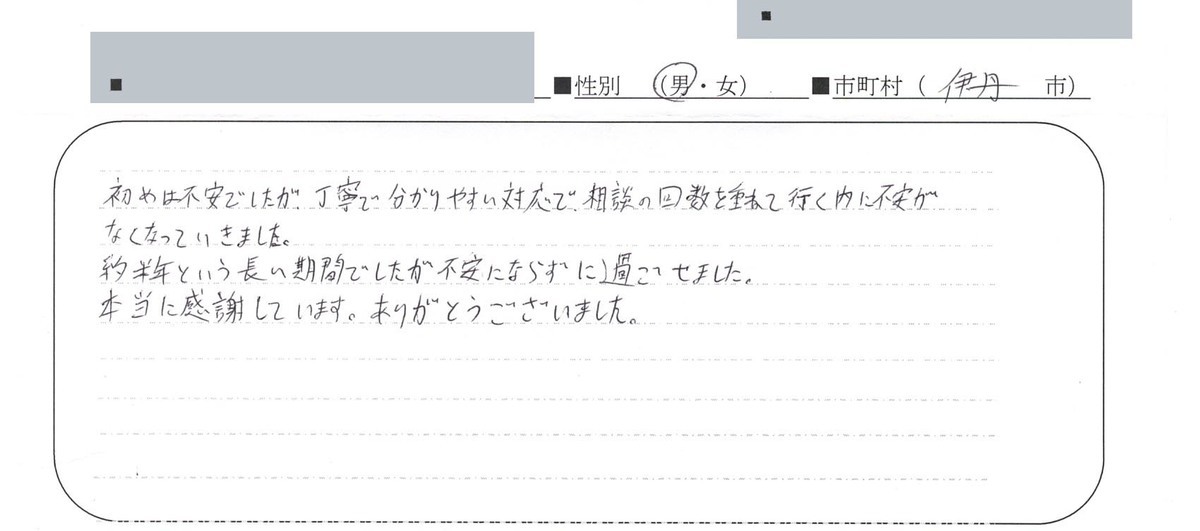 ■
■ ■性別 (男・女) ■市町村 ( 伊丹 市)
初めは不安でしたが、丁寧で分かりやすい対応で、相談の回数を重ねて行く内に不安が
なくなっていきました。
約半年という長い期間でしたが不安にならずに過ごせました。
本当に感謝しています。ありがとうございました。